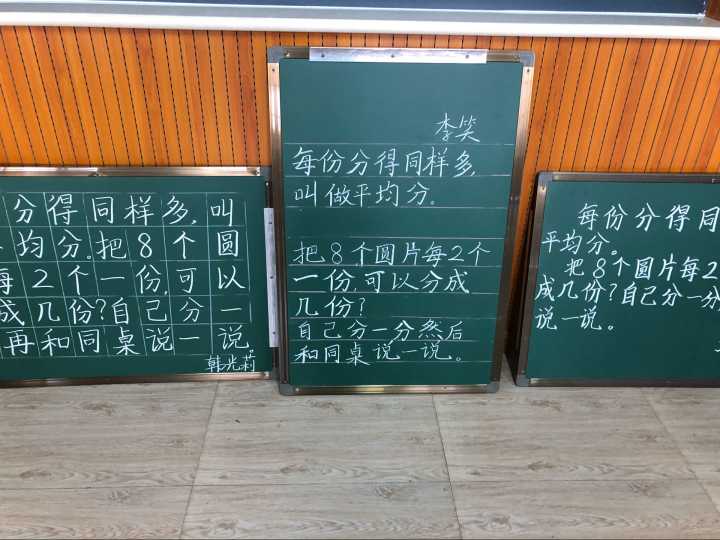 分得同样多,叫
均分.把8个圆
每2个一份,可以
成几份?自己分一
再和同桌说一说
韩光莉
李笑
每份分得同样多,
叫做平均分。
把8个圆片每2个
一份,可以分成
几份?
自己分一分然后
和同桌说一说。
每份分得同
平均分。
把8个圆片每2
成几份?自己分一分
说一说。